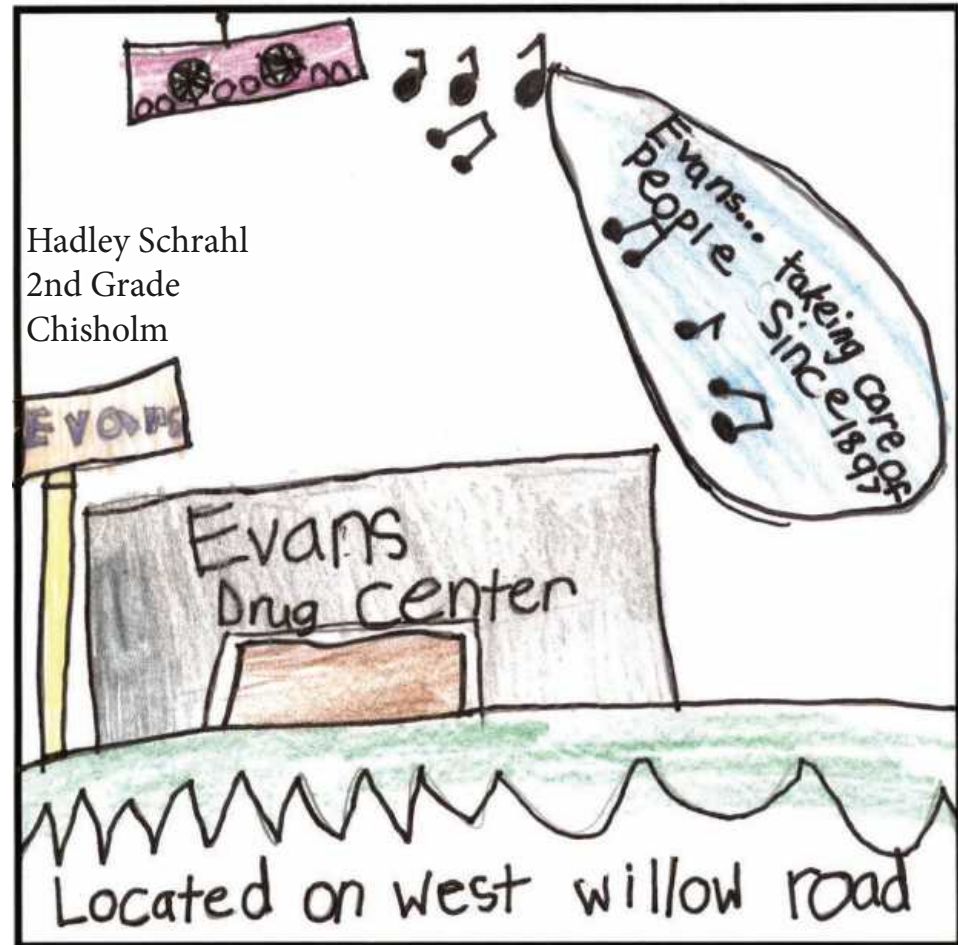 Evans... takeing care of
people Since 1897
Hadley Schrahl
2nd Grade
Chisholm
Evans
Evans
Drug center
Located on west willow road